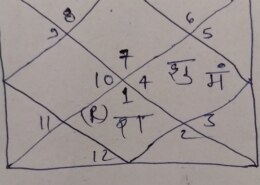 8 6
9 5
7 शु मं
10 4
1
11 (R) 3
श 2
12